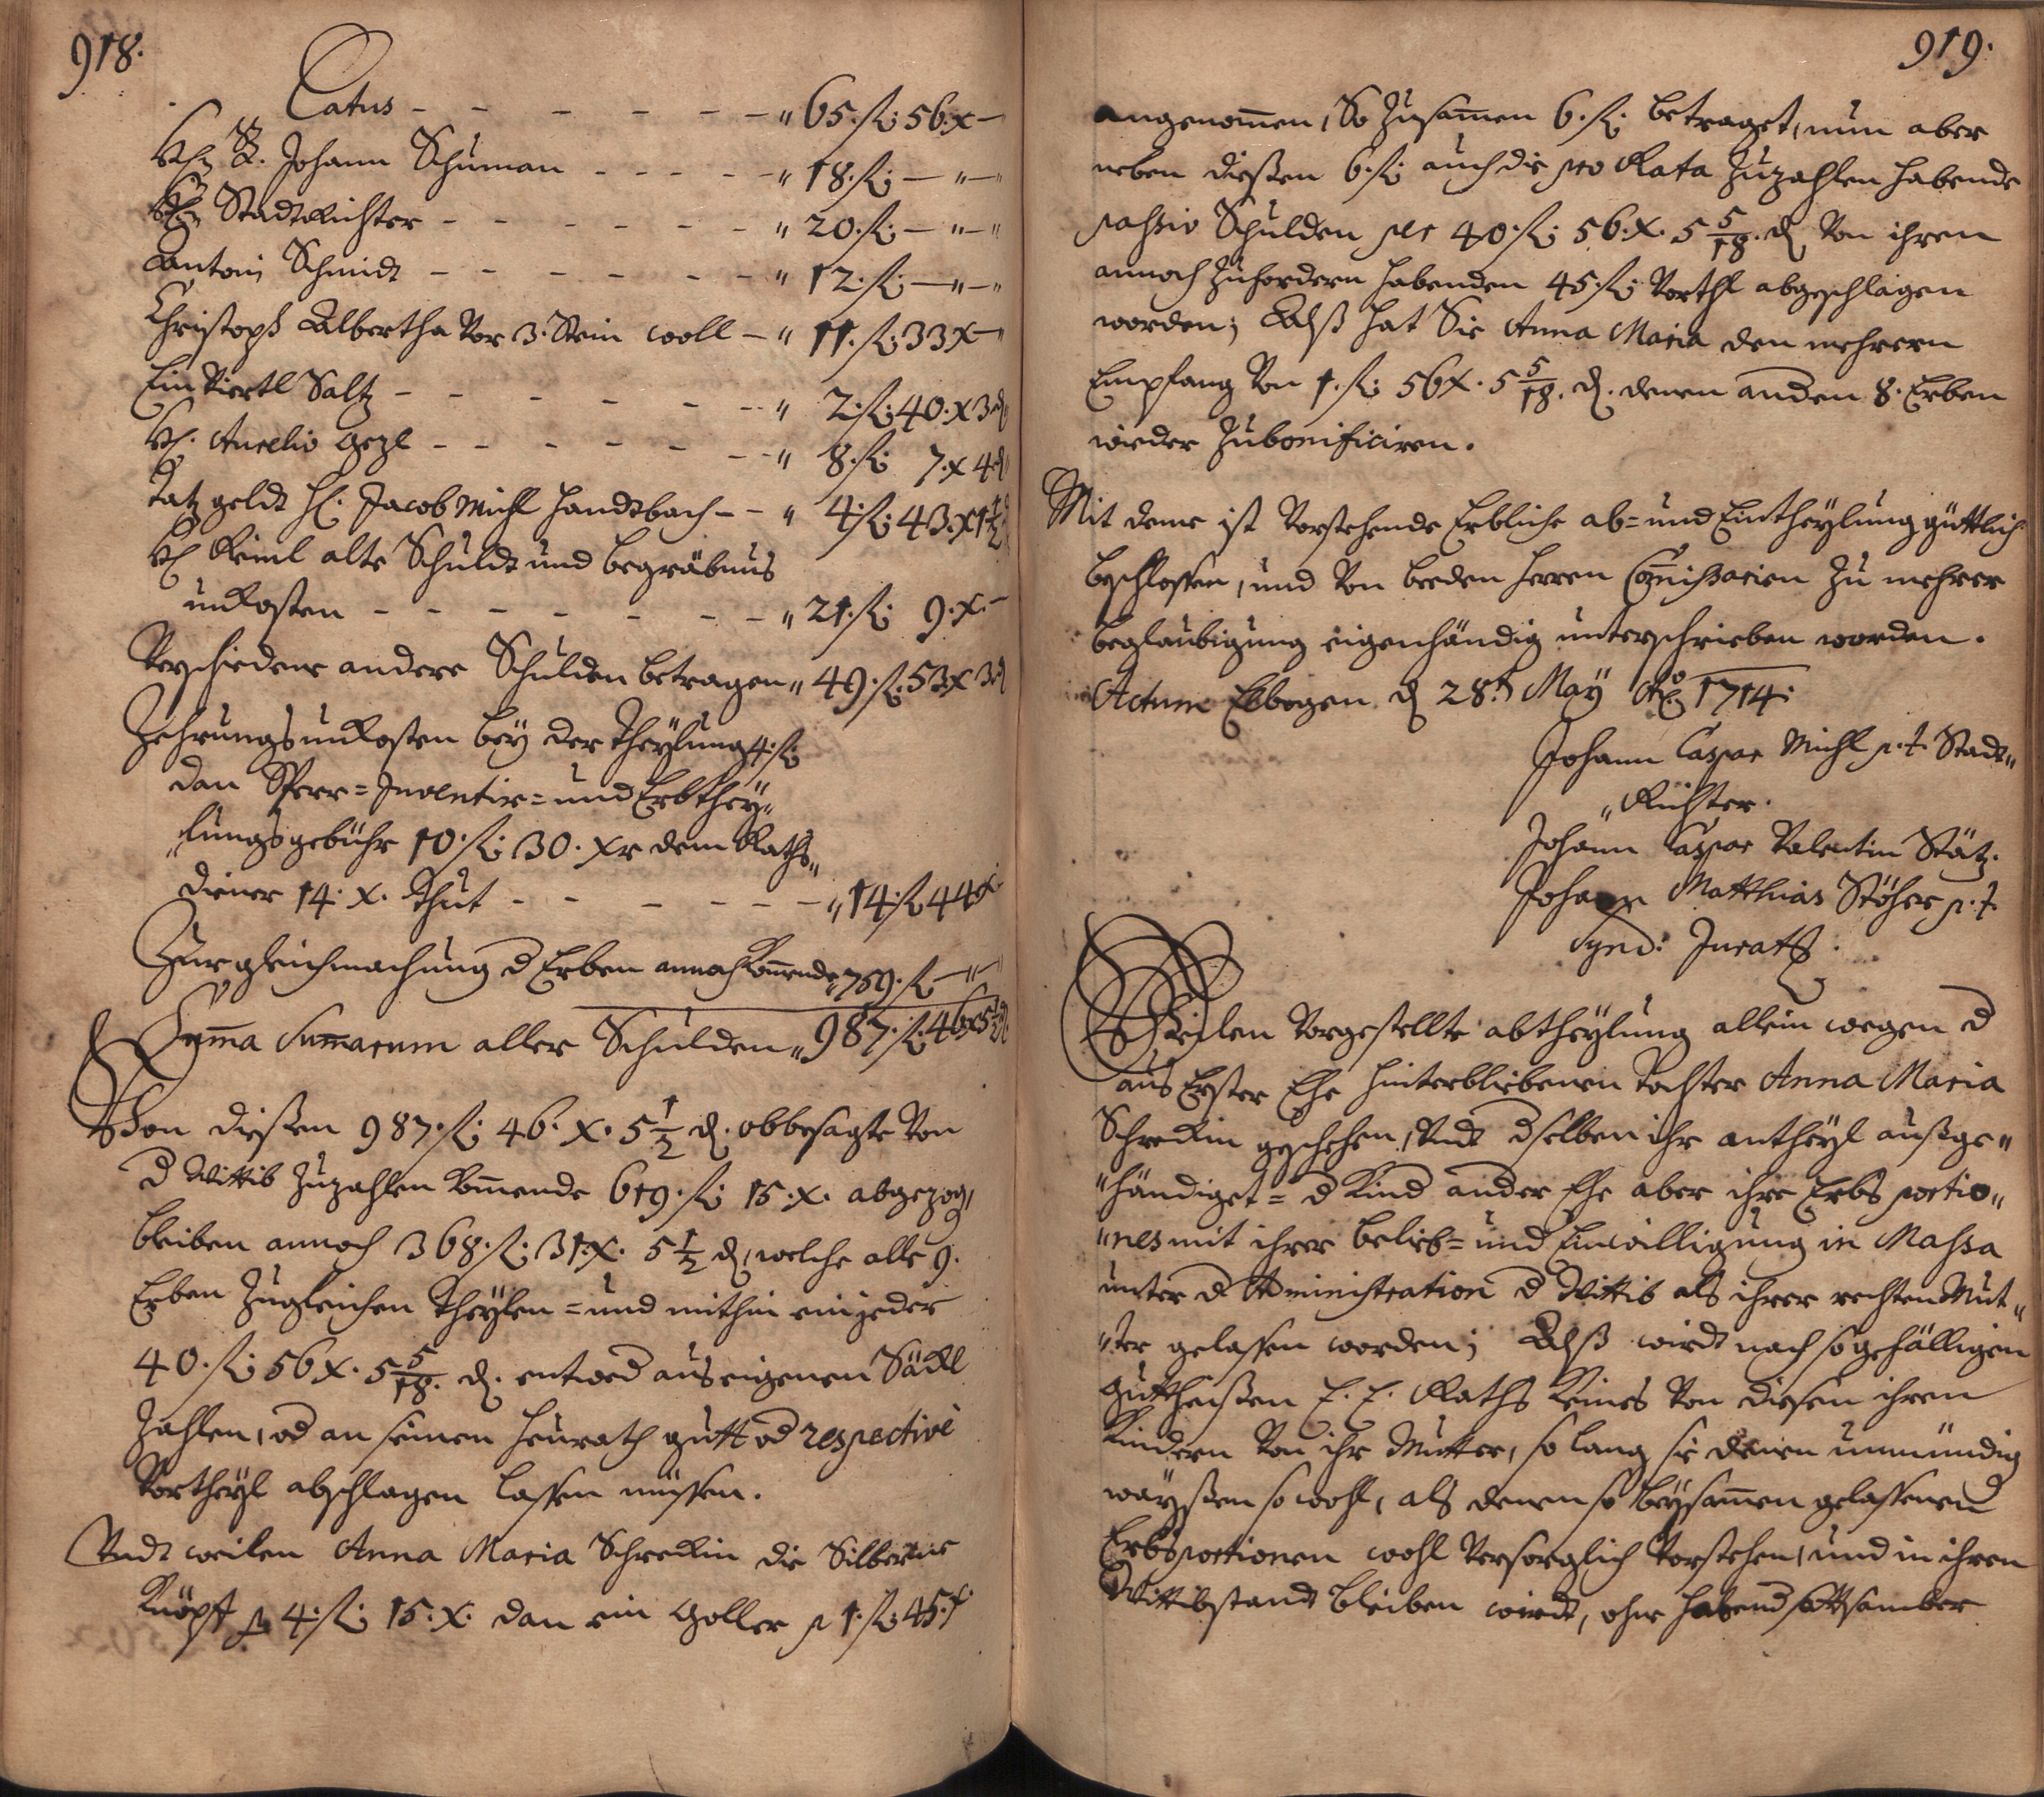 918.
Latus - - - - - - " 65. fl: 56. x -
H. Johann Schuman - - - - - " 18. fl: - " -
H. StadtRichter - - - - - - " 20. fl: - " - "
Antoni Schmidt - - - - - - " 12. fl: - " - "
Christoph Albertha Vor 3. Stein woll - " 11. fl: 33 x - "
Ein Viertl Saltz - - - - - - " 2. fl: 40. x 3 d
H. Aurelio - - - - - - " 8. fl: 7. x 4 d
Tatz geldt H. Jacob Michl Handtbach - - " 4. fl: 43. x 1 1/2
H. Reinl alte Schuldt und begräbnus
unkosten - - - - - - - " 21. fl: 9. x. -
Verschiedene andere Schulden betragen " 49. fl: 53 x 3 d
Zehrungs unkosten bey der Theylung 4. fl:
dan Sperr = Inventir = und Erbthey "
"lungsgebühr 10. fl: 30. xr dem Raths "
diener 14. x. Thut - - - - - - " 14. fl: 44 x
Zur gleichmachung d Erben annoch komende " 769. fl - " -
Suma Sumarum aller Schulden " 987. fl: 46 x 5 1/2 d
Von dießen 987. fl: 46. x. 5 1/2 d. obbesagte Von
d Wittib Zuzahlen komende 619. fl: 15. x. abgezog,
bleiben annoch 368. fl: 31. x. 5 1/2 d, welche alle 9.
Erben Zugleichen Theylen = und mithin ein jeder
40. fl: 56 x. 5 5/18. d. entwed aus eigenen Säckl
Zahlen, od an seinen Heurath gutt od respectivè
Vortheyl abschlagen lassen müssen.
Undt weilen Anna Maria Schreckin die Silberne
Knöpff p 4. fl: 15. x. dan ein Goller p 1. fl: 45. x
919.
angenomen, So Zusamen 6. fl: betraget, nun aber
neben dießen 6. fl: auch die pro Rata Zuzahlen habende
passiv Schulden per 40. fl: 56. x. 5 5/18. d Von ihren
annoch Zufordern habenden 45. fl: Vorthl abgeschlagen
worden; Alß hat Sie Anna Maria den mehrern
Empfang Von 1. fl: 56 x. 5 5/18. d. denen andern 8. Erben
wieder Zubonificiren.
Mit deme ist Vorstehende Erbliche ab = und Eintheylung güttlich
beschlossen, und Von beeden Herren Comissarien Zu mehrer
beglaubigung eigenhändig unterschrieben worden.
Actum Elbogen d 28t May Ao 1714.
Johann Caspar Michl p. t. Stadt "
"Richter.
Johann Caspar Valentin Stätz.
Johann Matthias Stöher p. t.
Synd: Juratg.
Weilen Vorgestellte abtheylung allein wegen d
aus Erster Ehe hinterbliebenen Tochter Anna Maria
Schreckin geschehen, Undt dselben ihr antheyl außge "
"händiget = d Kind ander Ehe aber ihre Erbs portio "
"nes mit ihrer belieb = und Einwilligung in Massa
unter d Administration d Wittib als ihrer rechten Mut "
"ter gelassen worden; Alß wirdt nach so gefälligen
guttheißen E. E. Raths keines Von diesen ihren
Kindern Von ihr Mutter, so lang sie denen unmündig
wayssen so wohl, als denen so beysamen gelassenen
Erbsportionen wohl Versorglich Vorstehen, und in ihren
Wittibstand bleiben wirdt, ohne habend